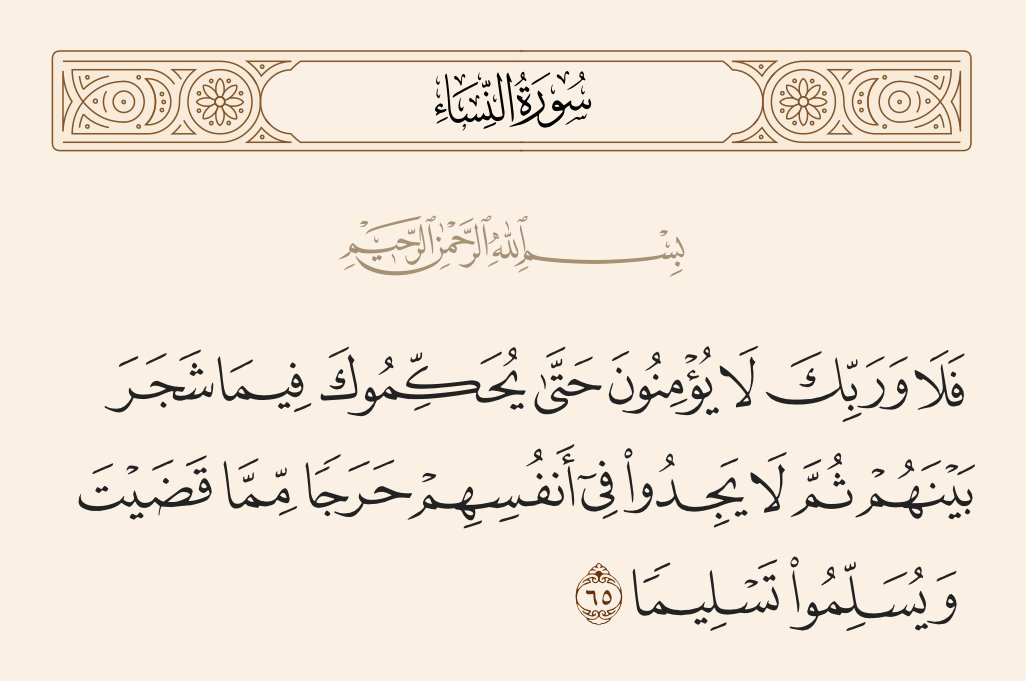 سُورَةُ النِّسَاءِ
بِسْمِ ٱللَّهِ ٱلرَّحْمَٰنِ ٱلرَّحِيمِ
فَلَا وَرَبِّكَ لَا يُؤْمِنُونَ حَتَّىٰ يُحَكِّمُوكَ فِيمَا شَجَرَ
بَيْنَهُمْ ثُمَّ لَا يَجِدُوا۟ فِىٓ أَنفُسِهِمْ حَرَجًا مِّمَّا قَضَيْتَ
وَيُسَلِّمُوا۟ تَسْلِيمًا ٦٥